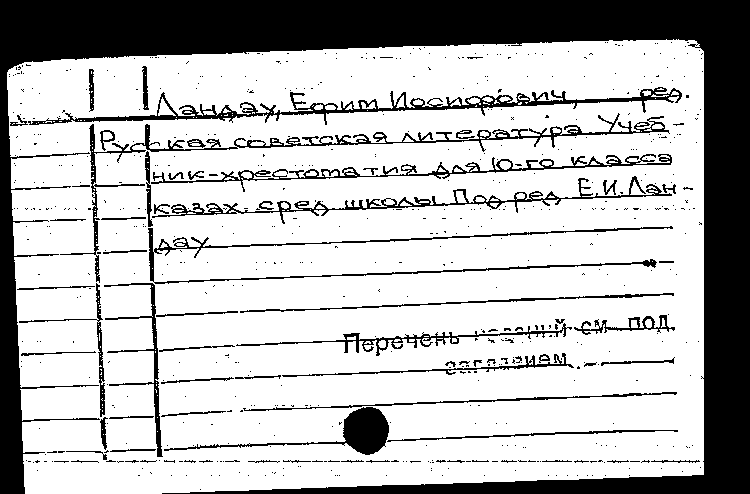 Ландау, Ефим Иосифович, ред.
Русская советская литература. Учеб-
ник-хрестоматия для 10-го класса
казах. сред. школы. Под ред. Е.И.Лан-
дау.
Перечень изданий см. под
заглавием.